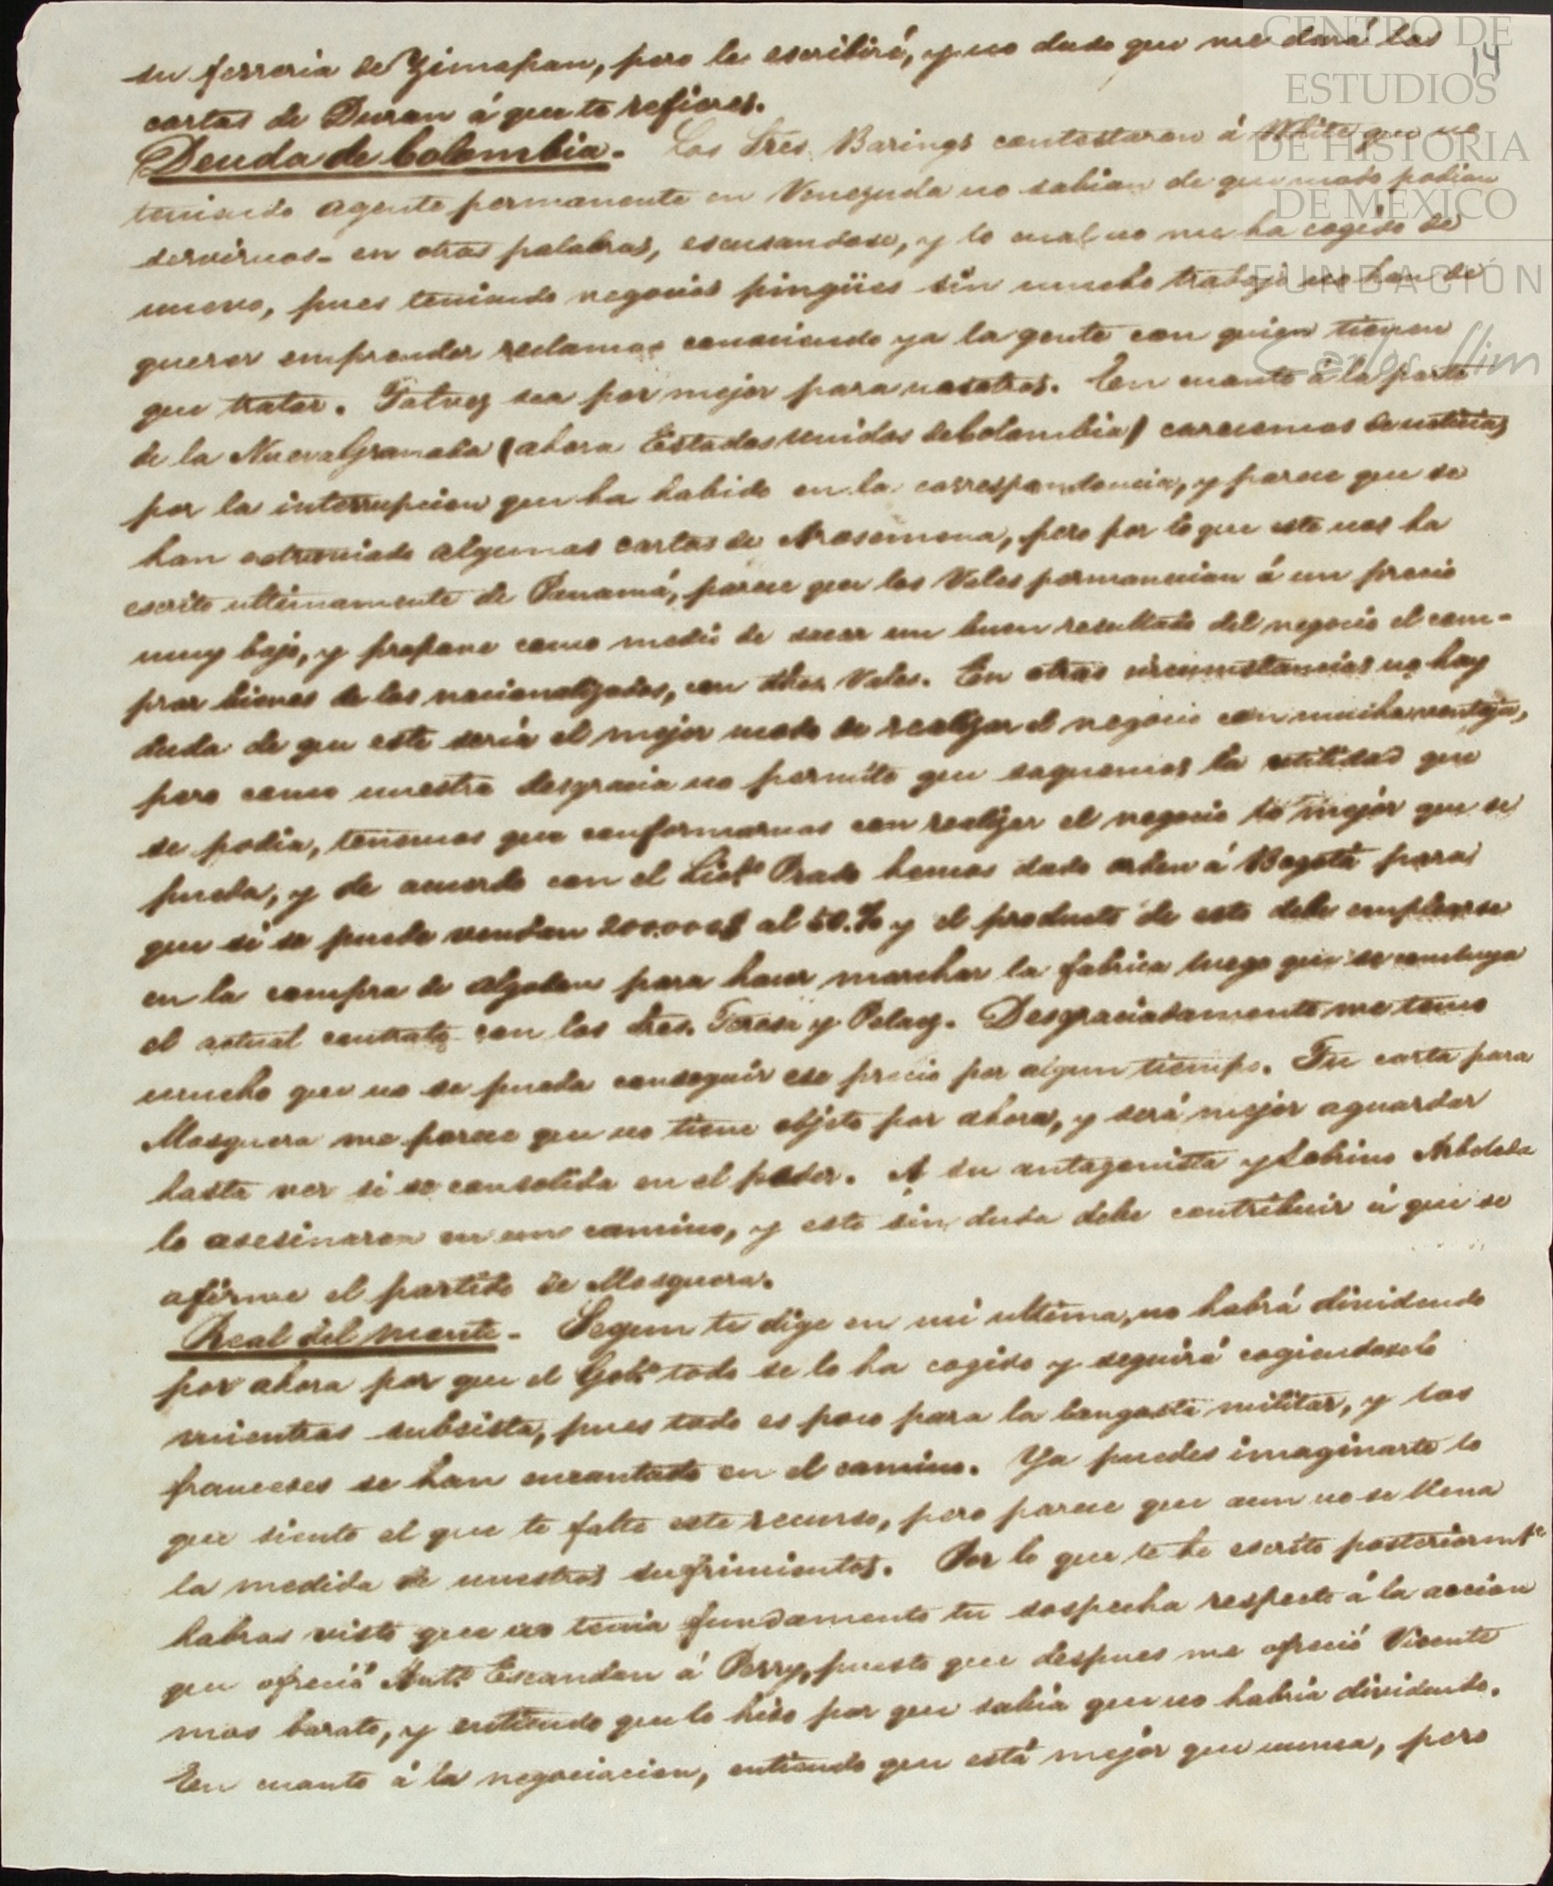 CENTRO DE
ESTUDIOS
DE HISTORIA
DE MÉXICO
FUNDACIÓN
Carlos Slim
14
su ferreria de Zimapan, pero le escribiré, y no dudo que me dará las
cartas de Duran á que te refieres.
Deuda de Colombia. Los Sres. Barings contestaron á White que no
teniendo agente permanente en Venezuela no sabian de que modo podian
servirnos - en otras palabras, escusandose, y lo cual no me ha cogido de
nuevo, pues teniendo negocios pingües sin mucho trabajo no han de
querer emprender reclamos conociendo ya la gente con quien tienen
que tratar. Talvez sea por mejor para nosotros. En cuanto á la parte
de la Nueva Granada (ahora Estados unidos de Colombia) carecemos de noticias
por la interrupcion que ha habido en la correspondencia, y parece que se
han estraviado algunas cartas de Arosemena, pero por lo que este nos ha
escrito ultimamente de Panamá, parece que los Vales permanecian á un precio
muy bajo, y propone como medio de sacar un buen resultado del negocio el com-
prar bienes de los nacionalizados, con dhos. Vales. En otras circunstancias no hay
duda de que este seria el mejor modo de realizar el negocio con mucha ventaja,
pero como nuestra desgracia no permite que saquemos la utilidad que
se podia, tenemos que conformarnos con realizar el negocio lo mejor que se
pueda, y de acuerdo con el Licdo. Prado hemos dado orden á Bogotá para
que si se puede vendan 200.000$ al 50.% y el producto de esto debe emplearse
en la compra de algodon para hacer marchar la fabrica luego que se concluya
el actual contrato con los Sres. Teresa y Pelaez. Desgraciadamente me temo
mucho que no se pueda conseguir ese precio por algun tiempo. Tu carta para
Mosquera me parece que no tiene objeto por ahora, y será mejor aguardar
hasta ver si se consolida en el poder. A su antagonista y Sobrino Arboleda
lo asesinaron en un camino, y esto sin duda debe contribuir á que se
afirme el partido de Mosquera.
Real del monte - Segun te dige en mi ultima, no habrá dividendo
por ahora por que el Gobo. todo se lo ha cogido y seguirá cogiendoselo
mientras subsista, pues todo es poco para la langosta militar, y los
franceses se han encantado en el camino. Ya puedes imaginarte lo
que siento el que te falte este recurso, pero parece que aun no se llena
la medida de nuestros sufrimientos. Por lo que te he escrito posteriormte.
habras visto que no tenia fundamento tu sospecha respecto á la accion
que ofreció Anto. Escandon á Perry, puesto que despues me ofreció Vicente
mas barato, y entiendo que lo hizo por que sabia que no habria dividendo.
En cuanto á la negociacion, entiendo que está mejor que nunca, pero